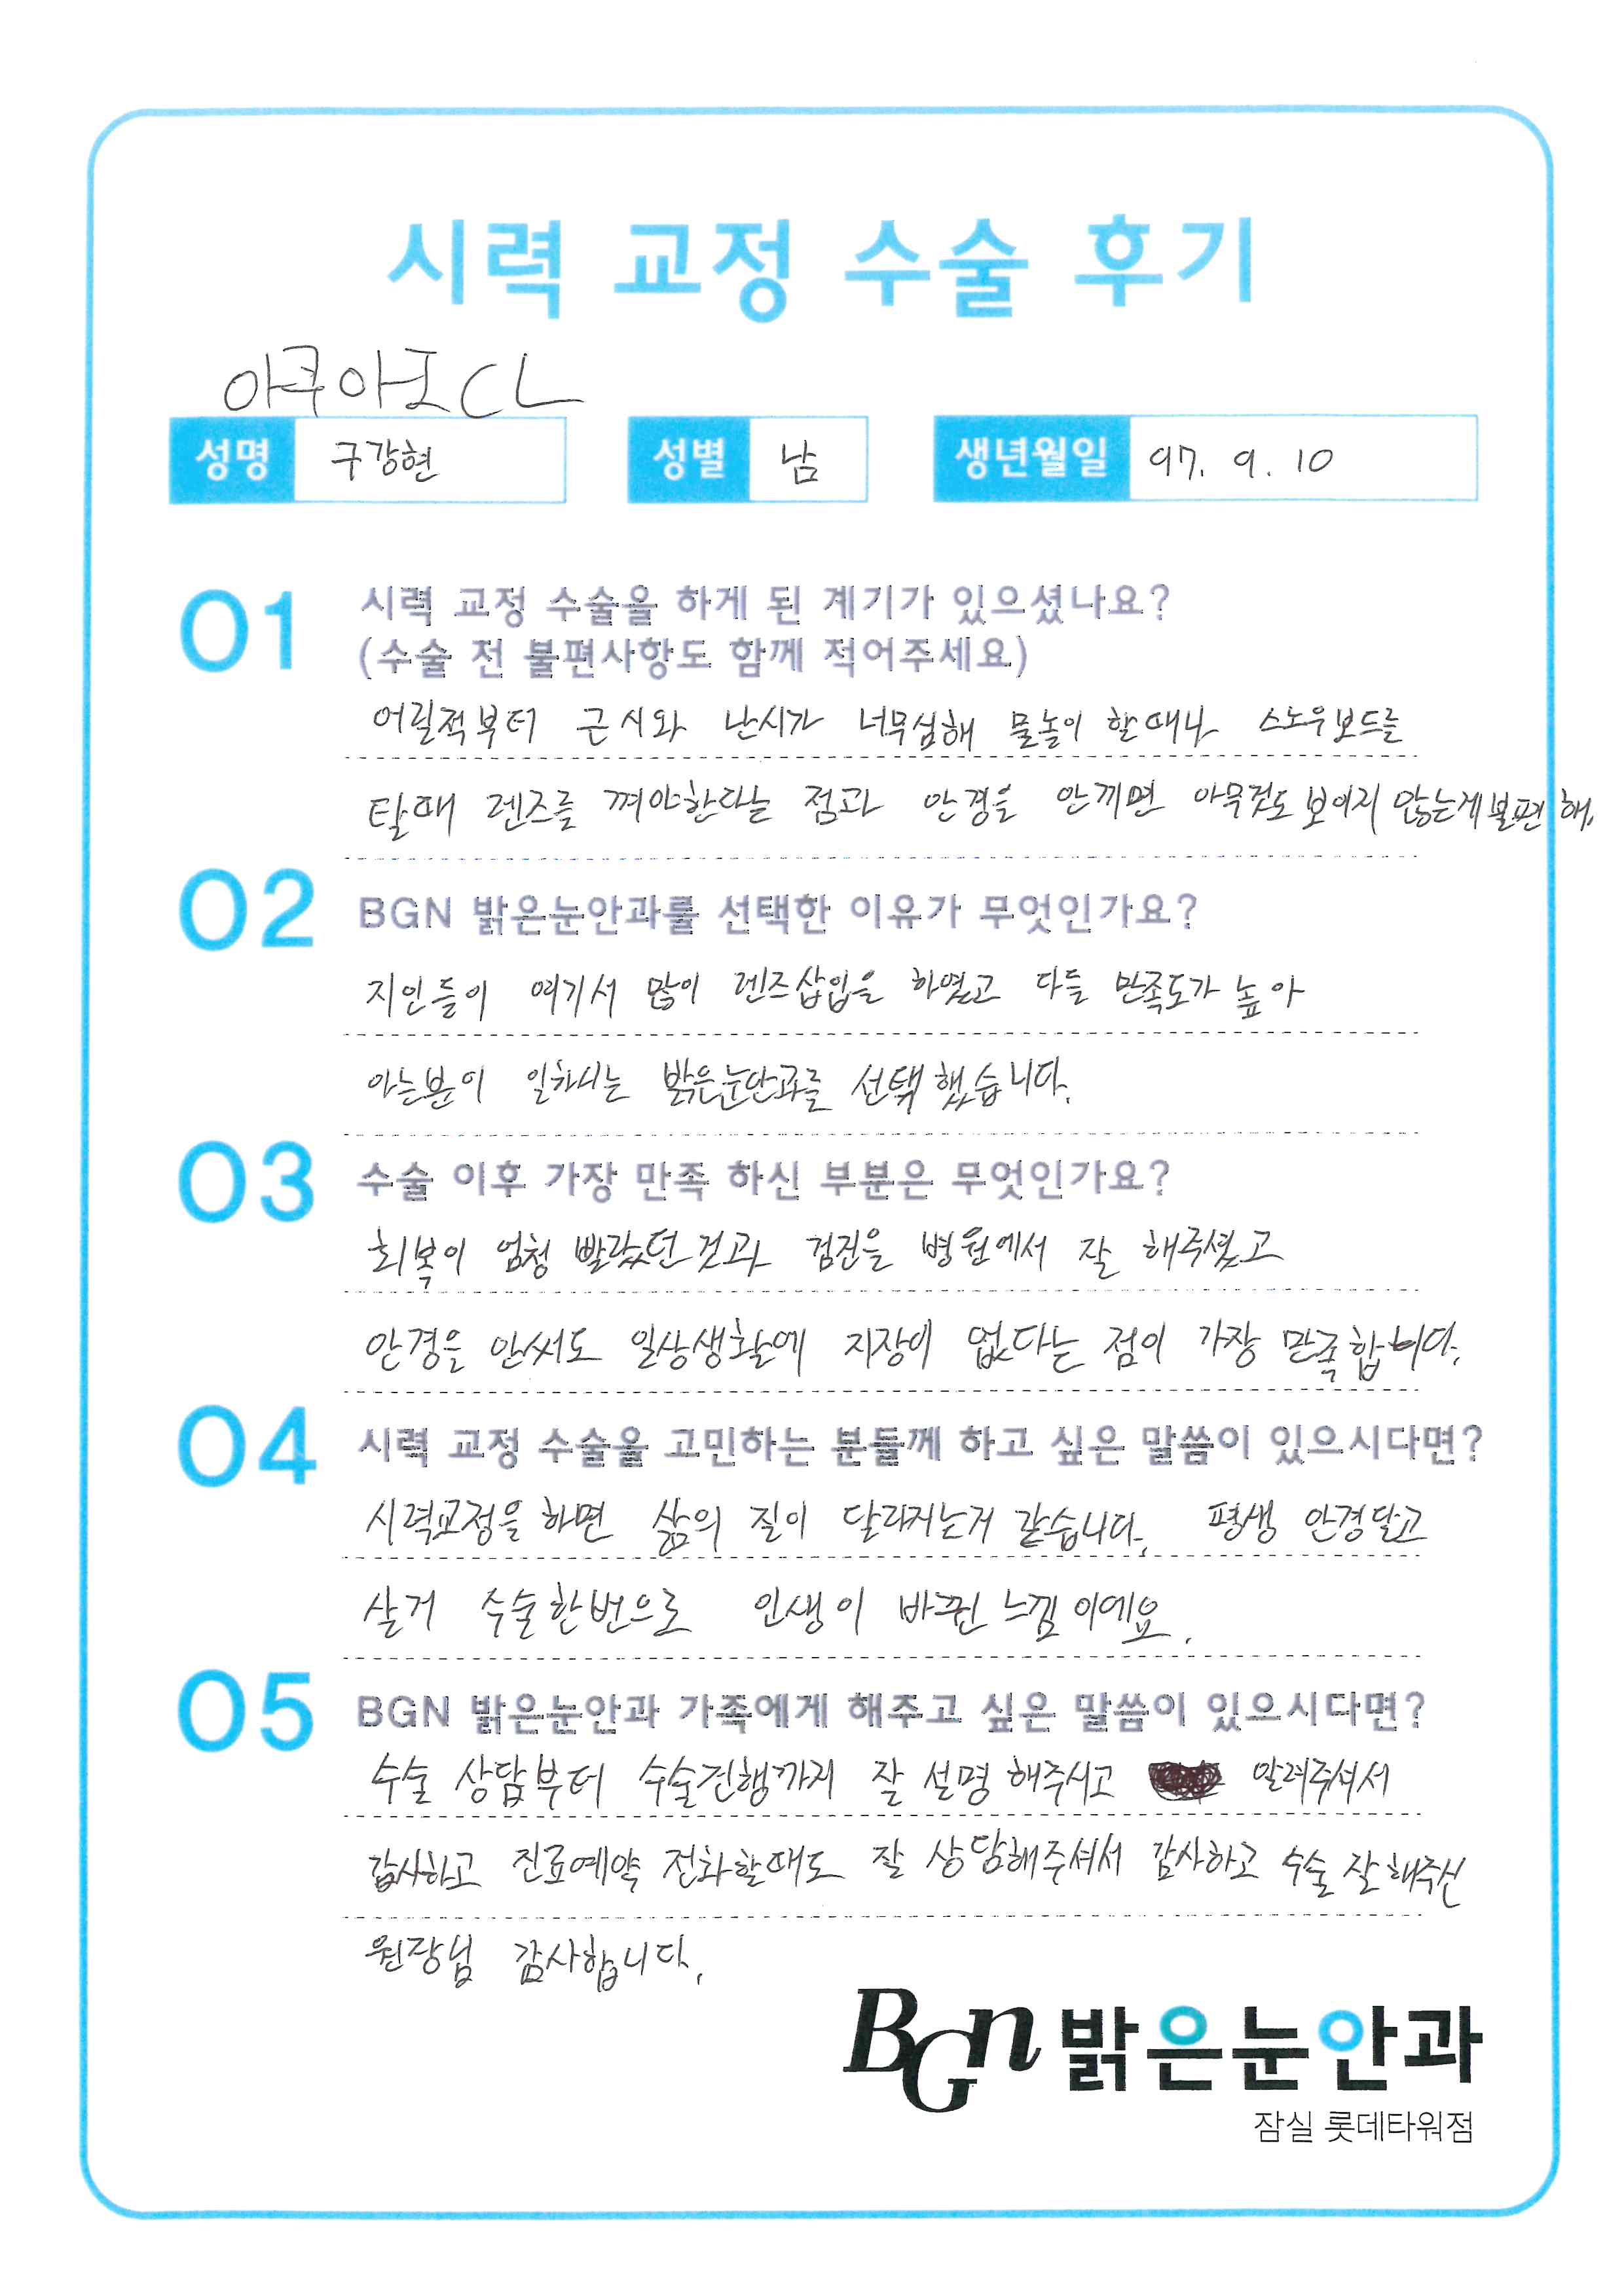 시력 교정 수술 후기
아쿠아ICL
성명 구강현 성별 남 생년월일 97. 9. 10
01 시력 교정 수술을 하게 된 계기가 있으셨나요?
(수술 전 불편사항도 함께 적어주세요)
어릴적부터 근시와 난시가 너무심해 물놀이 할때나 스노우보드를
탈때 렌즈를 껴야한다는 점과 안경을 안끼면 아무것도 보이지 않는게불편해.
02 BGN 밝은눈안과를 선택한 이유가 무엇인가요?
지인들이 여기서 많이 렌즈삽입을 하였고 다들 만족도가 높아
아는분이 일하시는 밝은눈안과를 선택했습니다.
03 수술 이후 가장 만족 하신 부분은 무엇인가요?
회복이 엄청 빨랐던것과 검진을 병원에서 잘 해주셨고
안경을 안써도 일상생활에 지장이 없다는 점이 가장 만족합니다.
04 시력 교정 수술을 고민하는 분들께 하고 싶은 말씀이 있으시다면?
시력교정을 하면 삶의 질이 달라지는거 같습니다. 평생 안경달고
살거 수술한번으로 인생이 바뀐 느낌이에요.
05 BGN 밝은눈안과 가족에게 해주고 싶은 말씀이 있으시다면?
수술 상담부터 수술진행까지 잘 설명해주시고 알려주셔서
감사하고 진료예약 전화할때도 잘 상담해주셔서 감사하고 수술 잘해주신
원장님 감사합니다.
BGN 밝은눈안과
잠실 롯데타워점